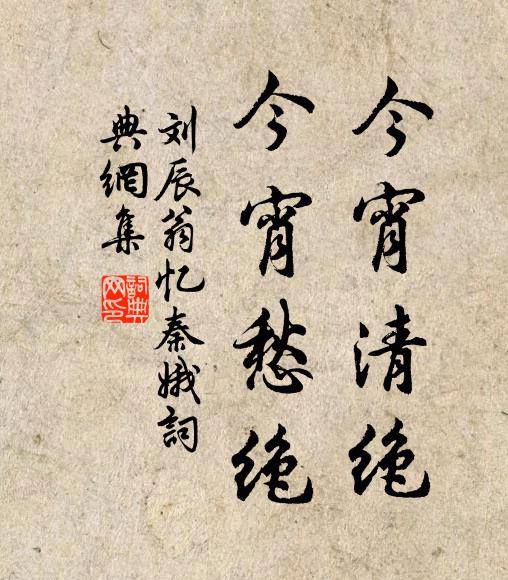 今宵清绝
今宵愁绝
刘辰翁忆秦娥詞
典網集
詞典網印